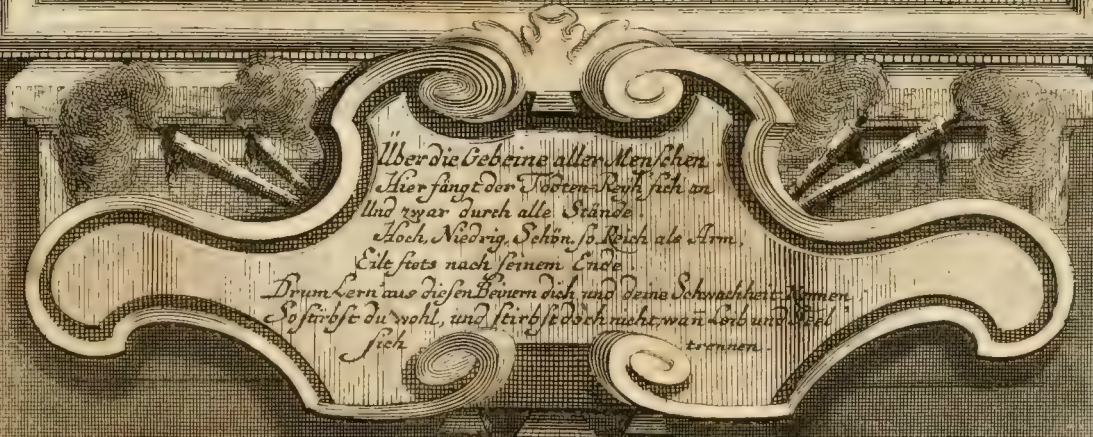 Über die Gebeine aller Menschen.
Hier fängt der Todten-Reyh sich an
Und zwar durch alle Stände.
Hoch, Niedrig, Schön, so Reich als Arm,
Eilt stets nach seinem Ende.
Drum Lern' aus diesen Beinern dich, und deine Schwachheit kennen
So stirbst du wohl, und stirbst doch nicht, wañ Leib und Seel'
sich trennen.